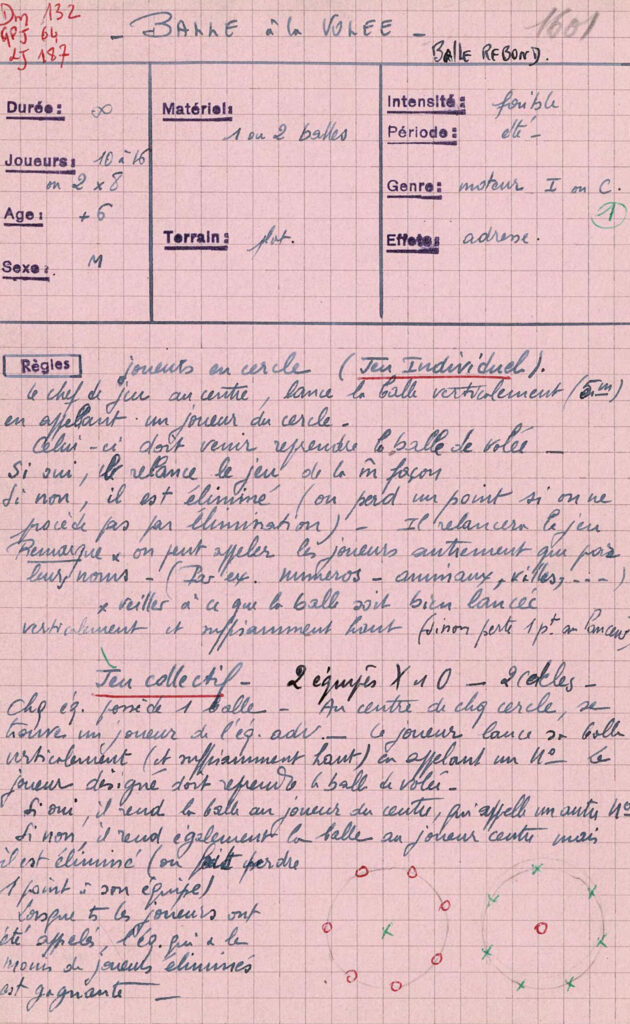 Dm 132
GPJ 64
LJ 187
- BALLE à la VOLÉE -
1601
BALLE REBOND.
Durée: ∞
Joueurs: 10 à 16
ou 2 x 8
Age: +6
Sexe: M
Matériel:
1 ou 2 balles
Terrain: plat.
Intensité: faible
Période: été -
Genre: moteur I ou C.
1
Effets: adresse.
Règles
joueurs en cercle (Jeu Individuel).
Le chef de jeu au centre, lance la balle verticalement (5m)
en appelant un joueur du cercle -
Celui-ci doit venir reprendre la balle de volée -
Si oui, il relance le jeu de la m̂ façon
Si non, il est éliminé (ou perd un point si on ne
procède pas par élimination) - Il relancera le jeu
Remarque x on peut appeler les joueurs autrement que par
leurs noms - (Par ex. numéros - animaux, villes, ---)
x veiller à ce que la balle soit bien lancée
verticalement et suffisamment haut (sinon perte 1 pt. au lanceur)
Jeu collectif - 2 équipes X et O - 2 cercles -
Chq éq. possède 1 balle - Au centre de chq cercle, se
trouve un joueur de l'éq. adv - Ce joueur lance sa balle
verticalement (et suffisamment haut) en appelant un N° - Le
joueur désigné doit reprendre la balle de volée -
Si oui, il rend la balle au joueur du centre, qui appelle un autre N°
Si non, il rend également la balle au joueur centre mais
il est éliminé (ou fait perdre
1 point à son équipe)
Lorsque ts les joueurs ont
été appelés, l'éq. qui a le
moins de joueurs éliminés
est gagnante -